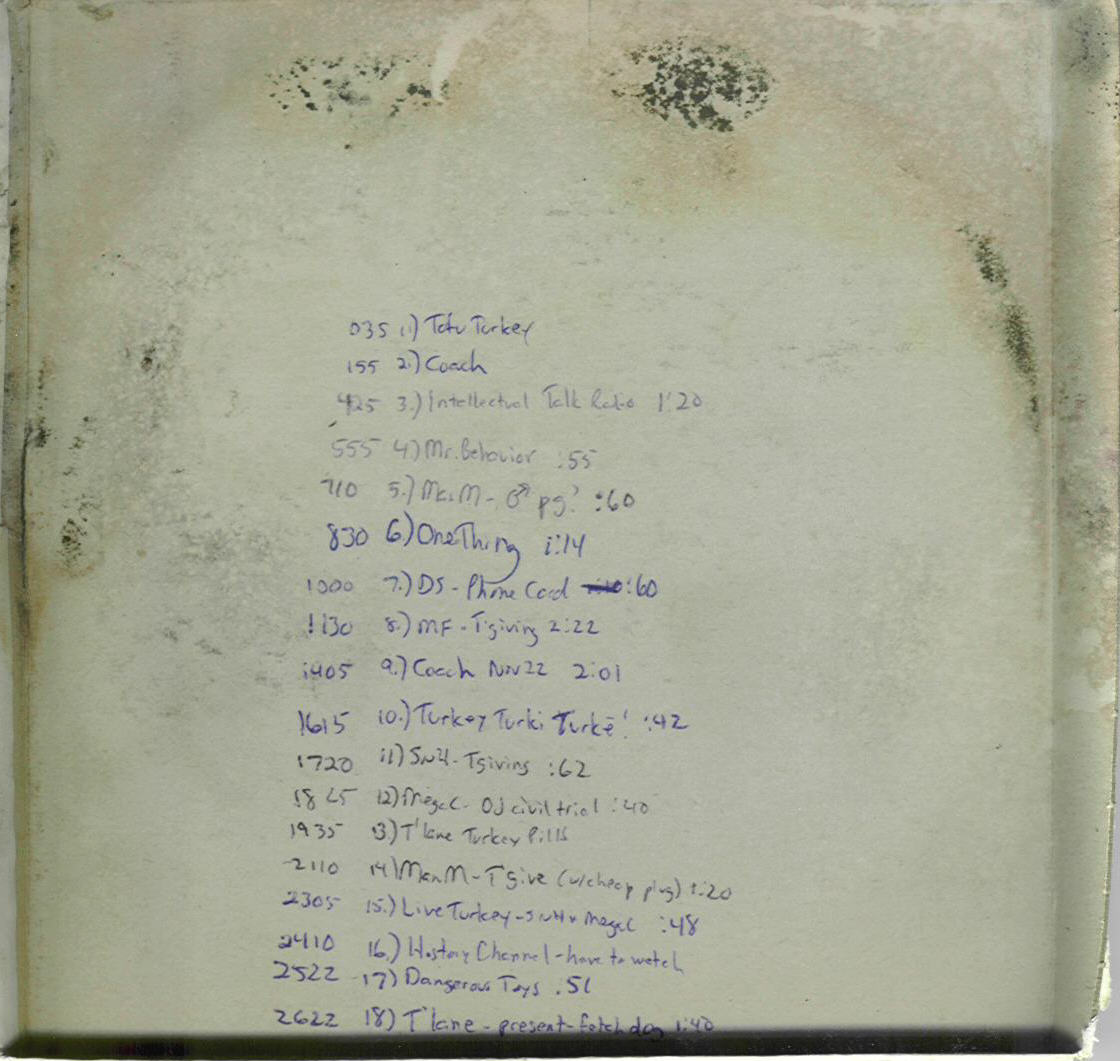 035 1.) Tofu Turkey
155 2.) Coach
425 3.) Intellectual Talk Radio 1:20
555 4.) Mr. Behavior :55
710 5.) ManM - ♂ pg? :60
830 6.) One Thing 1:14
1000 7.) DS - Phone Card :60
1130 8.) MF - T'giving 2:22
1405 9.) Coach Nov 22 2:01
1615 10.) Turkey Turki Turkē! :42
1720 11) SNH - Tgiving :62
1825 12) MegaC - OJ civil trial :40
1935 13.) T'lane Turkey Pills
2110 14) ManM - T'give (w/cheap plug) 1:20
2305 15.) Live Turkey - SNH + MegaC :48
2410 16.) History Channel - have to watch
2522 17) Dangerous Toys :51
2622 18) T'lane - present - fetch dog 1:40